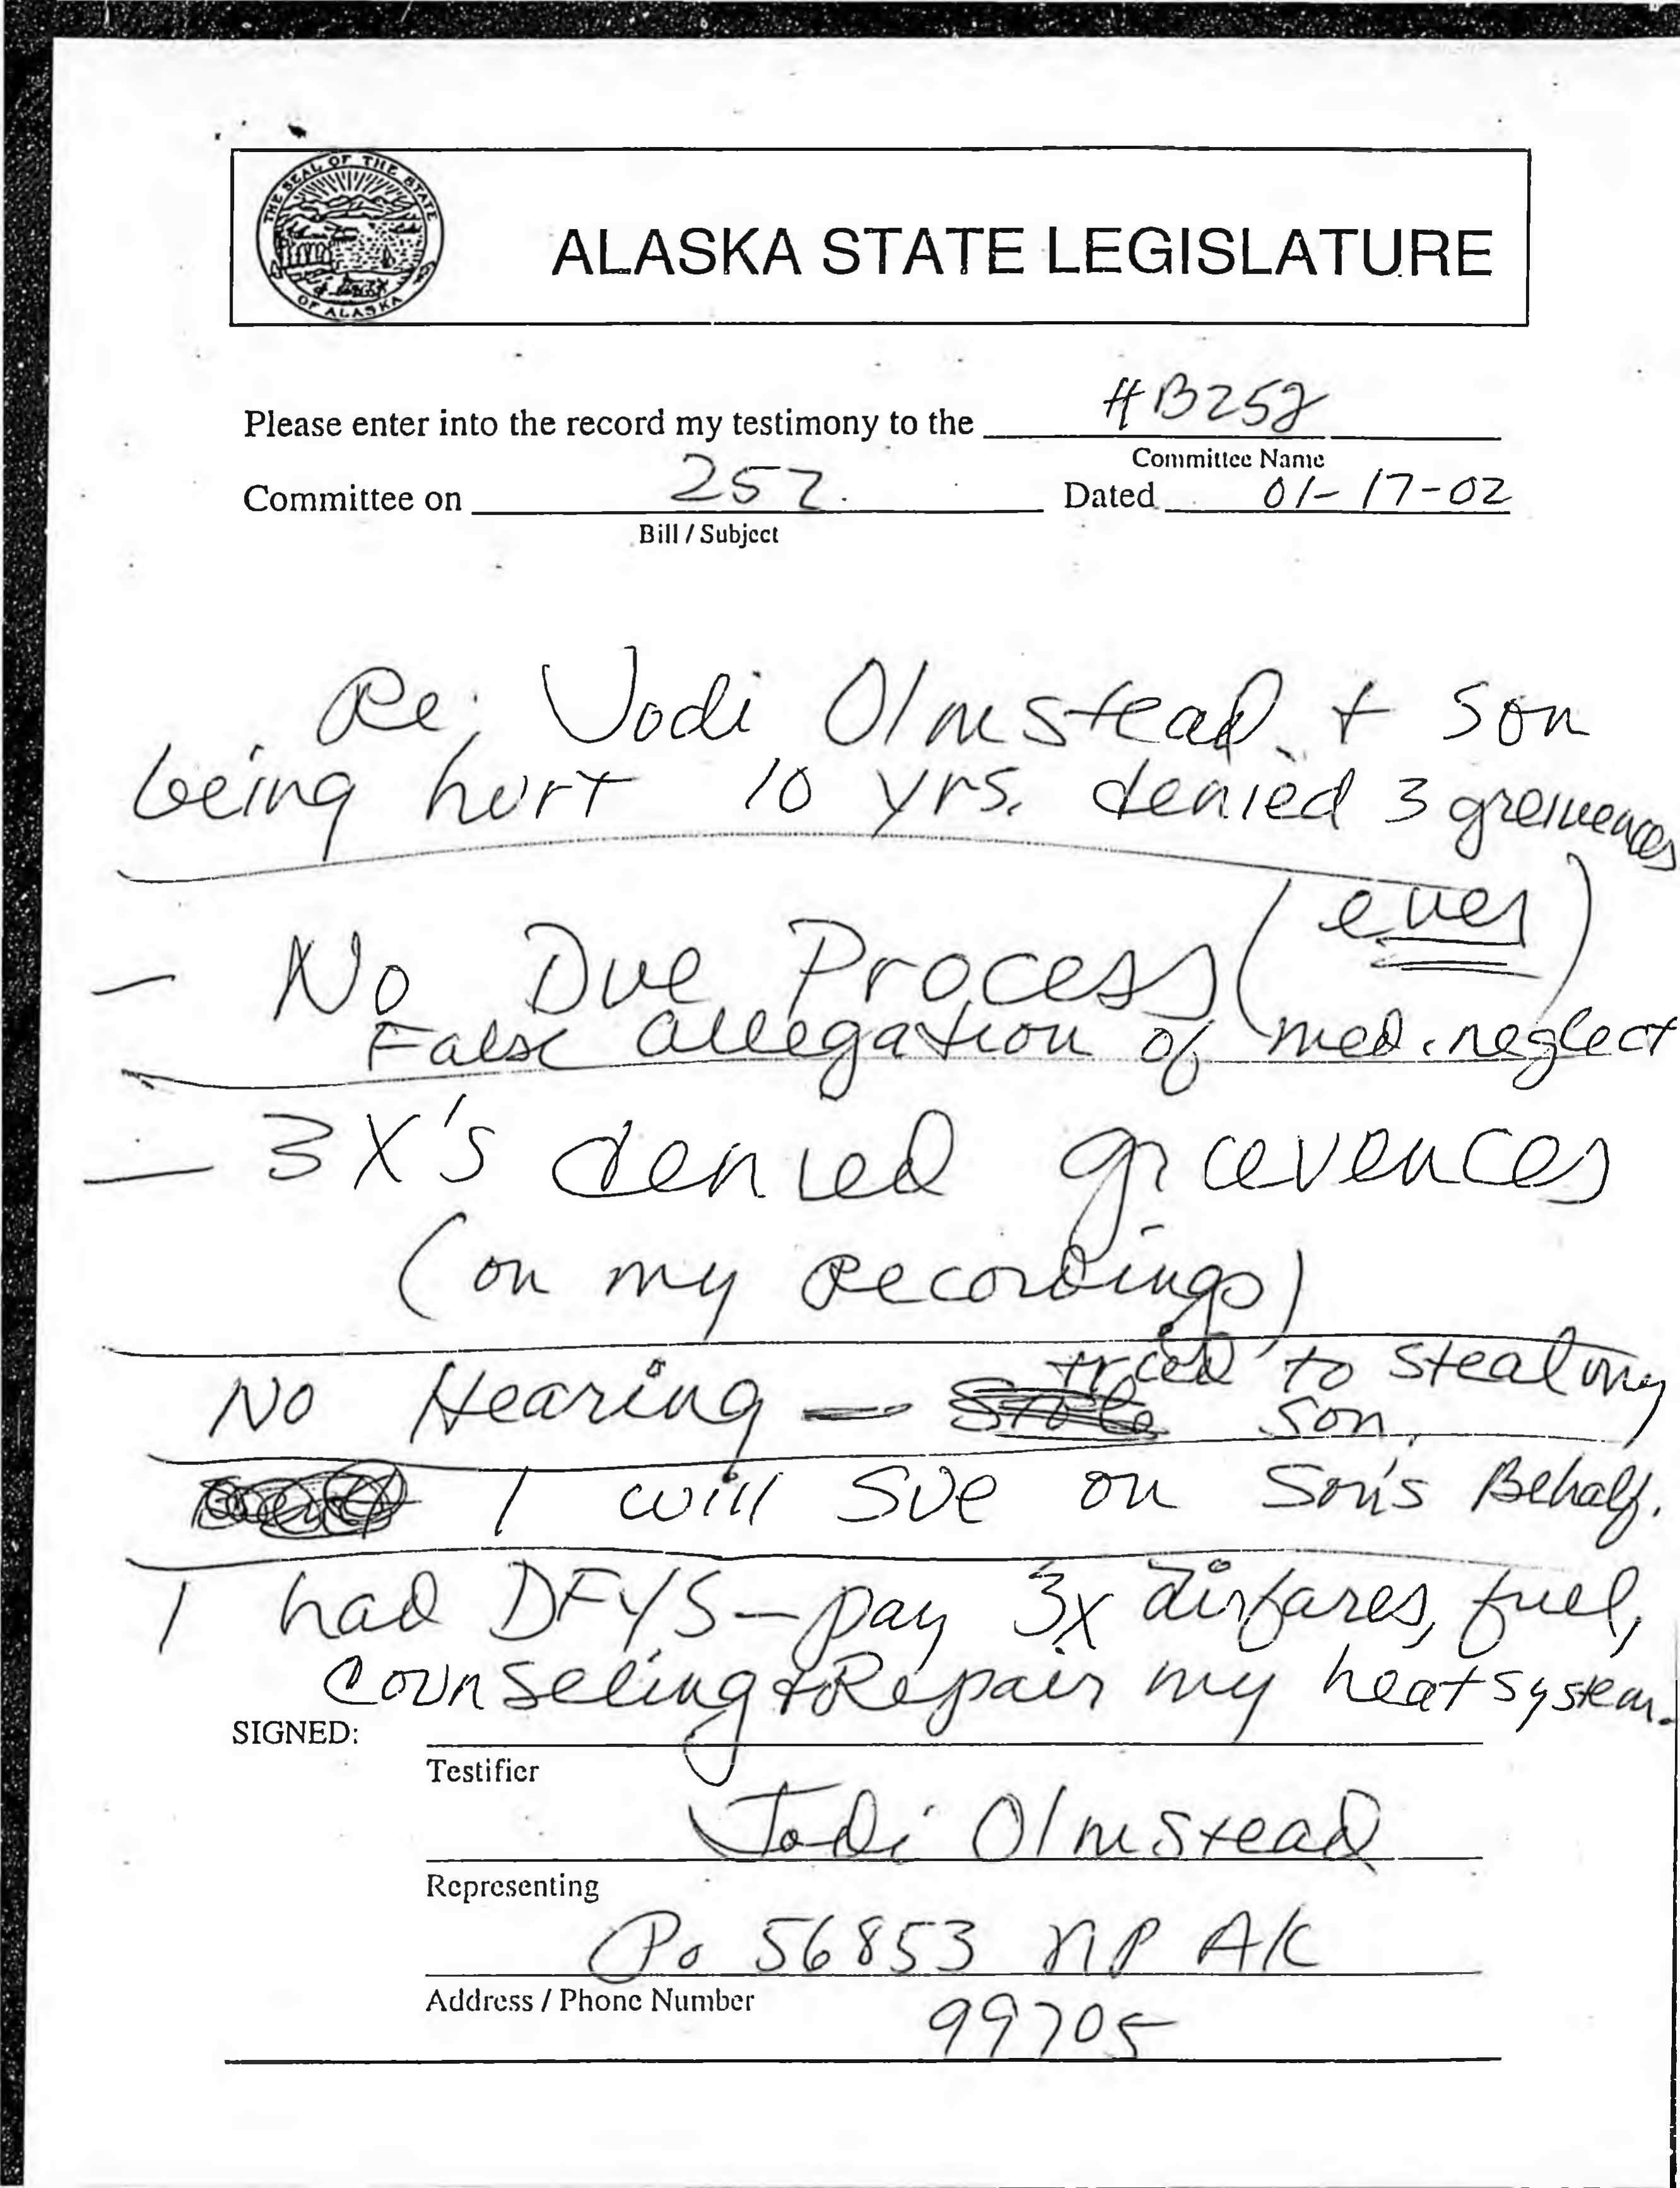 THE SEAL OF THE STATE OF ALASKA
ALASKA STATE LEGISLATURE
Please enter into the record my testimony to the HB252
Committee Name
Committee on 252 Dated 01-17-02
Bill / Subject
Re: Jodi Olmstead + son
being hurt 10 yrs. denied 3 greivences
- No Due Process (ever)
False allegation of med. neglect
- 3X's denied grievences
(on my Recordings)
No Hearing - Stole tried to steal my
son.
I will sue on Son's Behalf.
I had DFYS - pay 3x airfares, fuel,
Counseling + Repair my heat system.
SIGNED:
Testifier
Jodi Olmstead
Representing
Po 56853 NP AK
Address / Phone Number
99705